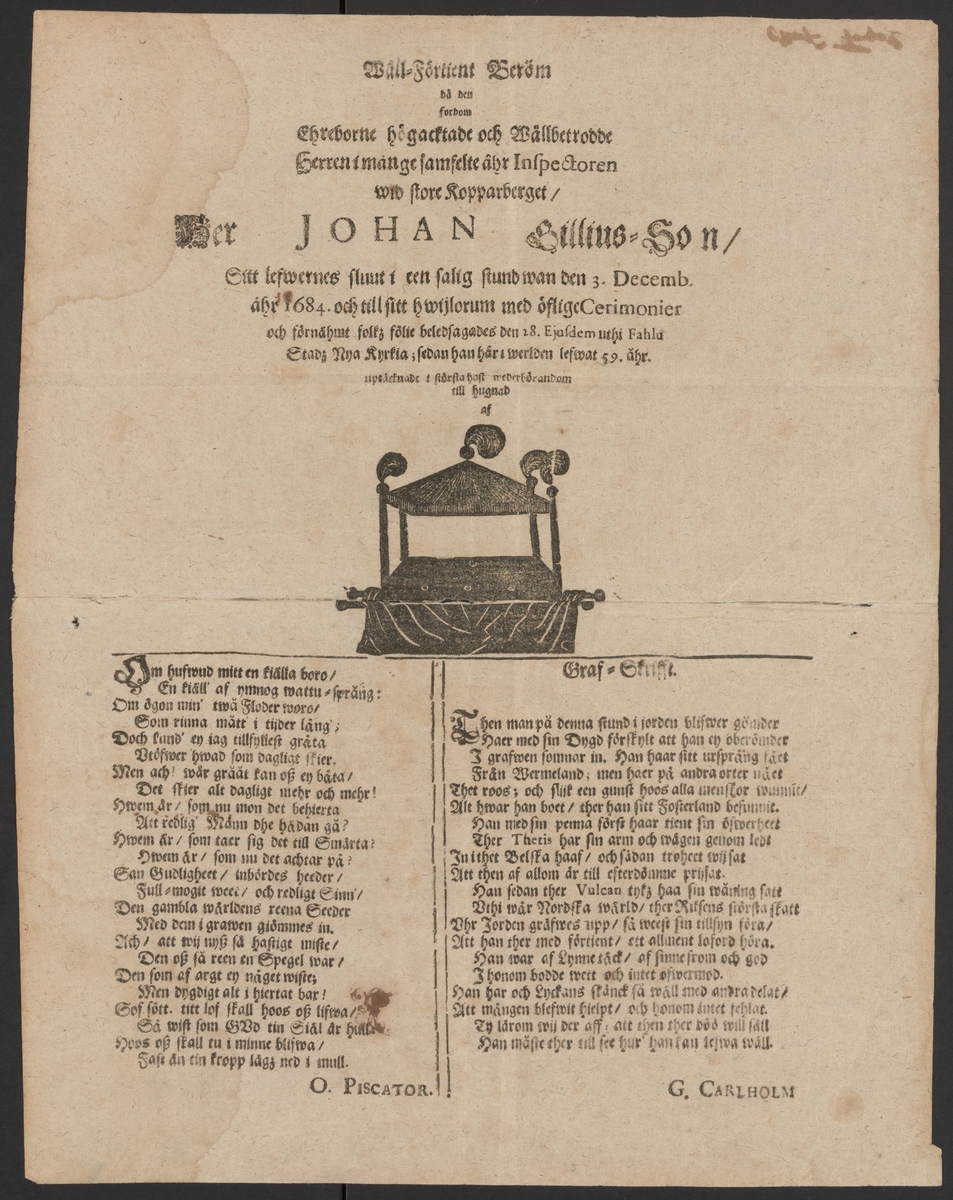 Wäll-Förtient Beröm
då den
fordom
Ehreborne högacktade och Wällbetrodde
Herren i mänge samfelte åhr Inspectoren
wid store Kopparberget/
Her JOHAN Gillius-Son/
Sitt lefwernes sluut i een salig stund wan den 3. Decemb.
åhr 1684. och till sitt hwijlorum med öflige Cerimonier
och förnähmt folkz fölie beledsagades den 28. Ejusdem uthi Fahlu
Stadz Nya Kyrkia; sedan han här i werlden lefwat 59. åhr.
uptäcknadt i största hast wederbörandom
till hugnad
af
Om hufwud mitt en kiälla boro/
En kiäll' af ymnog wattu-språng:
Om ögon min' twå Floder woro/
Som rinna mått' i tijder lång';
Doch kund' ey iag tillfyllest gråta
Vtöfwer hwad som dagligt skier.
Men ach! wår grååt kan oß ey båta/
Det skier alt dagligt mehr och mehr!
Hwem är/ som nu mon det behierta
Att redlig' Männ dhe hädan gå?
Hwem är/ som taer sig det till Smärta?
Hwem är/ som nu det achtar på?
San Gudligheet/ inbördes heeder/
Full-mogit weet/ och redligt Sinn'/
Den gambla wärldens reena Seeder
Med dem i grawen giömmes in.
Ach/ att wij nyß så hastigt miste/
Den oß så reen en Spegel war/
Den som af argt ey något wiste;
Men dygdigt alt i hiertat bar!
Sof sött. titt lof skall hoos oß lifwa/
Så wist som GVd tin Siäl är huld
Hoos oß skall tu i minne blifwa/
Fast än tin kropp lägz ned i mull.
O. PISCATOR.
Graf-Skrifft.
Then man på denna stund i jorden blifwer gömder
Haer med sin Dygd förskylt att han ey oberömder
I grafwen somnar in. Han haar sitt ursprång fået
Från Wermeland; men haer på andra orter nået
Thet roos; och slijk een gunst hoos alla menskor wunnit/
Alt hwar han boet/ ther han sitt Fosterland befunnit.
Han med sin penna först haar tient sin öfwerheet
Ther Thetis har sin arm och wägen genom ledt
In i thet Belska haaf/ och sådan troheet wijsat
Att then af allom är till efterdömme prijsat.
Han sedan ther Vulcan tykz haa sin wåning satt
Vthi wår Nordska wärld/ ther Riksens största skatt
Vhr Jorden gräfwes upp/ så weest sin tillsyn föra/
Att han ther med förtient/ ett allment loford höra.
Han war af Lynne täck/ af sinne from och god
I honom bodde wett och intet ofwermod.
Han har och Lyckans skänck så wäll med andra delat/
Att mången blefwit hielpt/ och honom intet fehlat.
Ty lärom wij der aff: att then ther döö will säll
Han måste ther till see hur' han kan lefwa wäll.
G. CARLHOLM